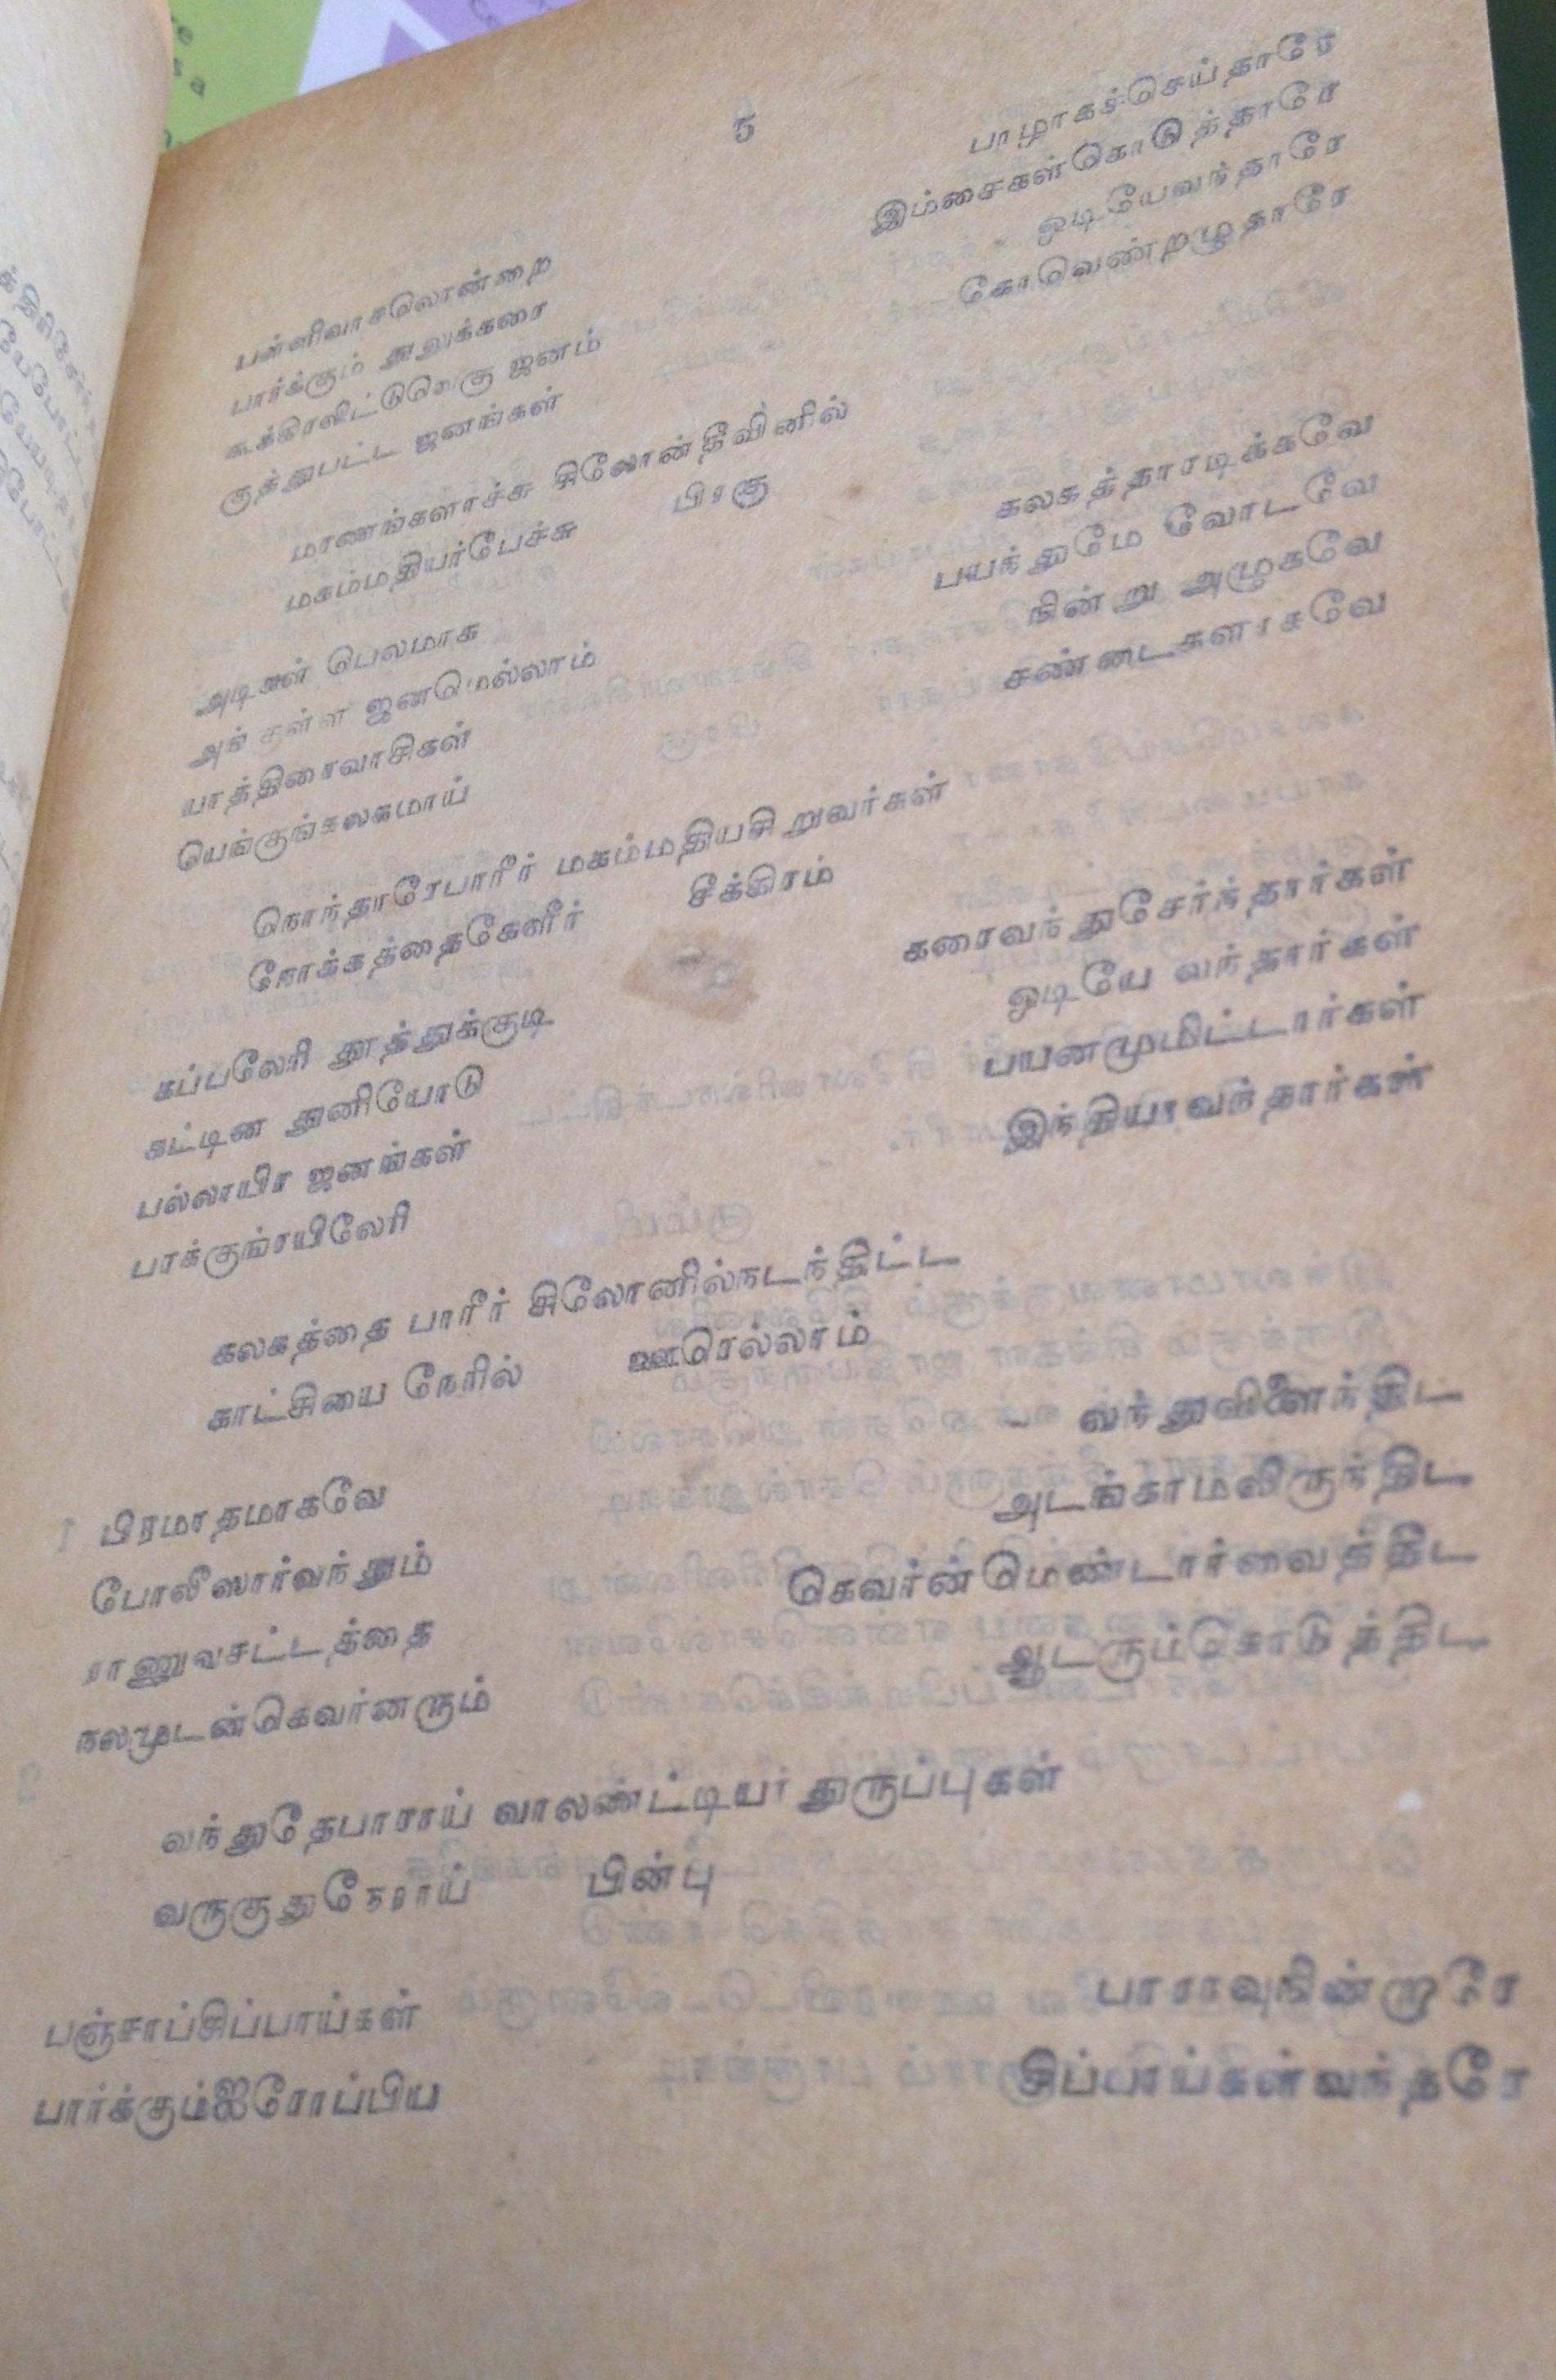 5
பள்ளிவாசலொன்றை பாழாகச்செய்தாரே
பார்க்கும் துலுக்கரை இம்சைகள்கொடுத்தாரே
கூக்குரலிட்டுவெகு ஜனம் ஓடியேவந்தாரே
குத்துபட்ட ஜனங்கள் கோவென்றழுதாரே
மரணங்களாச்சு சிலோன்தீவினில்
மகம்மதியர்பேச்சு பிரகு
அடிகள் பெலமாக கலகத்தாரடிக்கவே
அங்குள்ள ஜனமெல்லாம் பயந்துமே வோடவே
யாத்திரைவாசிகள் நின்று அழுகவே
யெங்குங்கலகமாய் சண்டைகளாகவே
நொந்தாரேபாரீர் மகம்மதியசிறுவர்கள்
நோக்கத்தைகேளீர் சீக்கிரம்
கப்பலேரி தூத்துக்குடி கரைவந்துசேர்ந்தார்கள்
கட்டின துனியோடு ஓடியே வந்தார்கள்
பல்லாயிர ஜனங்கள் பயனமுமிட்டார்கள்
பாக்குங்ரயிலேரி இந்தியாவந்தார்கள்
கலகத்தை பாரீர் சிலோனில்நடந்திட்ட
காட்சியை நேரில் ஊரெல்லாம்
பிரமாதமாகவே வந்துவிளைந்திட
போலீஸார்வந்தும் அடங்காமலிருந்திட
ராணுவசட்டத்தை கெவர்ன்மெண்டார்வைத்திட
நலமுடன்கெவர்னரும் ஆடரும்கொடுத்திட
வந்துதேபாராய் வாலண்ட்டியர் துருப்புகள்
வருகுதுநேராய் பின்பு
பஞ்சாப்சிப்பாய்கள் பாராவுநின்றாரே
பார்க்கும்ஐரோப்பிய சிப்பாய்கள்வந்தரே